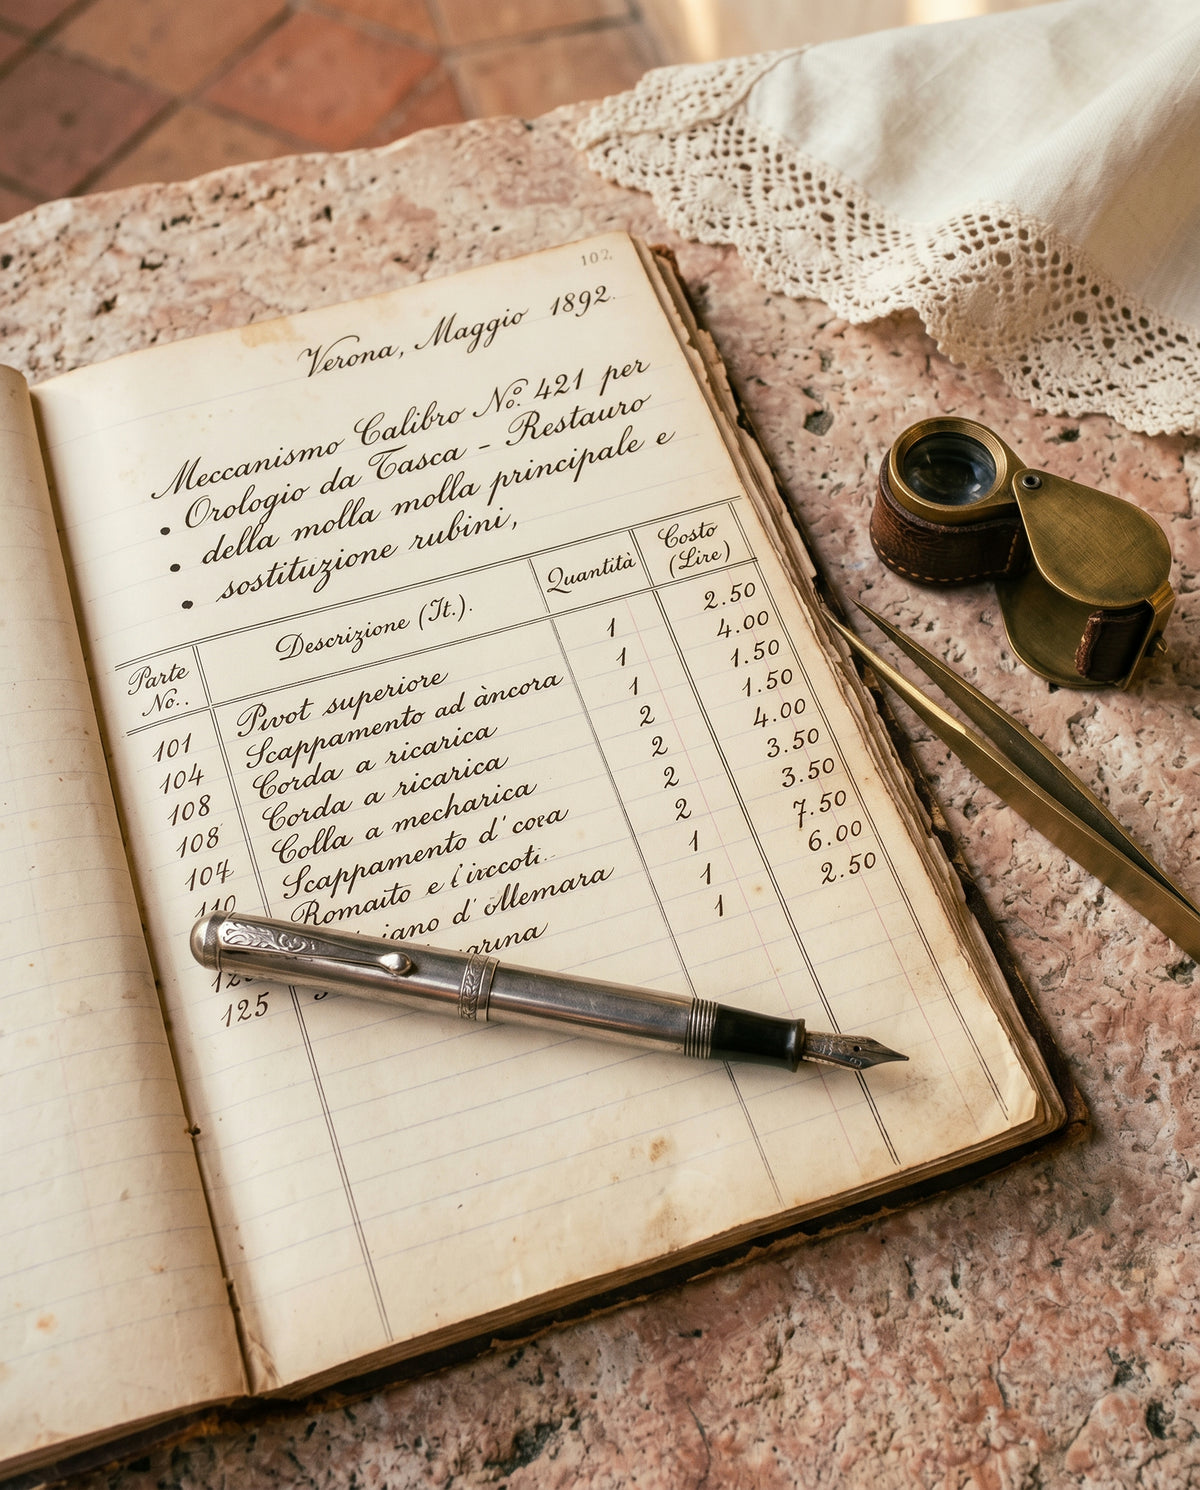 102
Verona, Maggio 1892.
Meccanismo Calibro Nº. 421 per
• Orologio da Tasca – Restauro
• della molla molla principale e
• sostituzione rubini,
Parte No.. Descrizione (It.). Quantità Costo (Lire)
101 Pivot superiore 1 2.50
104 Scappamento ad àncora 1 4.00
108 Corda a ricarica 1 1.50
108 Corda a ricarica 2 1.50
104 Colla a mecharica 2 4.00
110 Scappamento d' 2 3.50
Romaito e 2 3.50
d' 1 7.50
1 6.00
125 1 2.50